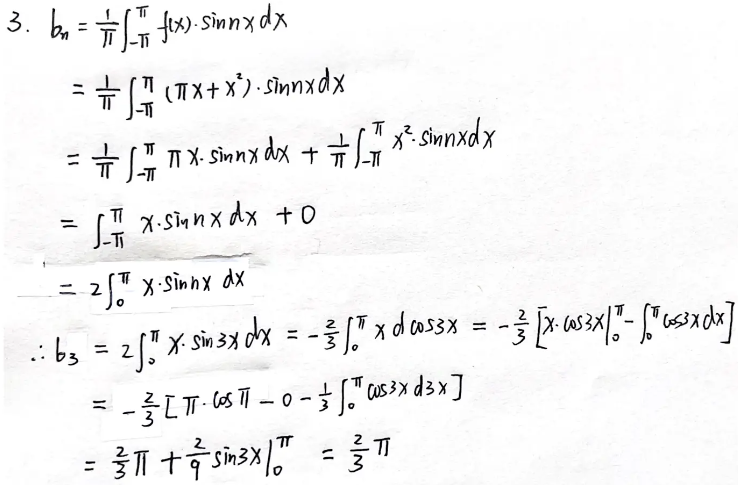 3. bₙ = 1/π ∫_{-π}^{π} f(x)·sinnx dx
= 1/π ∫_{-π}^{π} (πx+x²)·sinnxdx
= 1/π ∫_{-π}^{π} πx·sinnx dx + 1/π ∫_{-π}^{π} x²·sinnxdx
= ∫_{-π}^{π} x·sinnx dx + 0
= 2∫_{0}^{π} x·sinnx dx
∴ b₃ = 2∫_{0}^{π} x·sin3xdx = -2/3 ∫_{0}^{π} x d cos3x = -2/3 [x·cos3x|_{0}^{π} - ∫_{0}^{π} cos3xdx]
= -2/3 [π·cosπ - 0 - 1/3 ∫_{0}^{π} cos3x d3x]
= 2/3 π + 2/9 sin3x|_{0}^{π} = 2/3 π